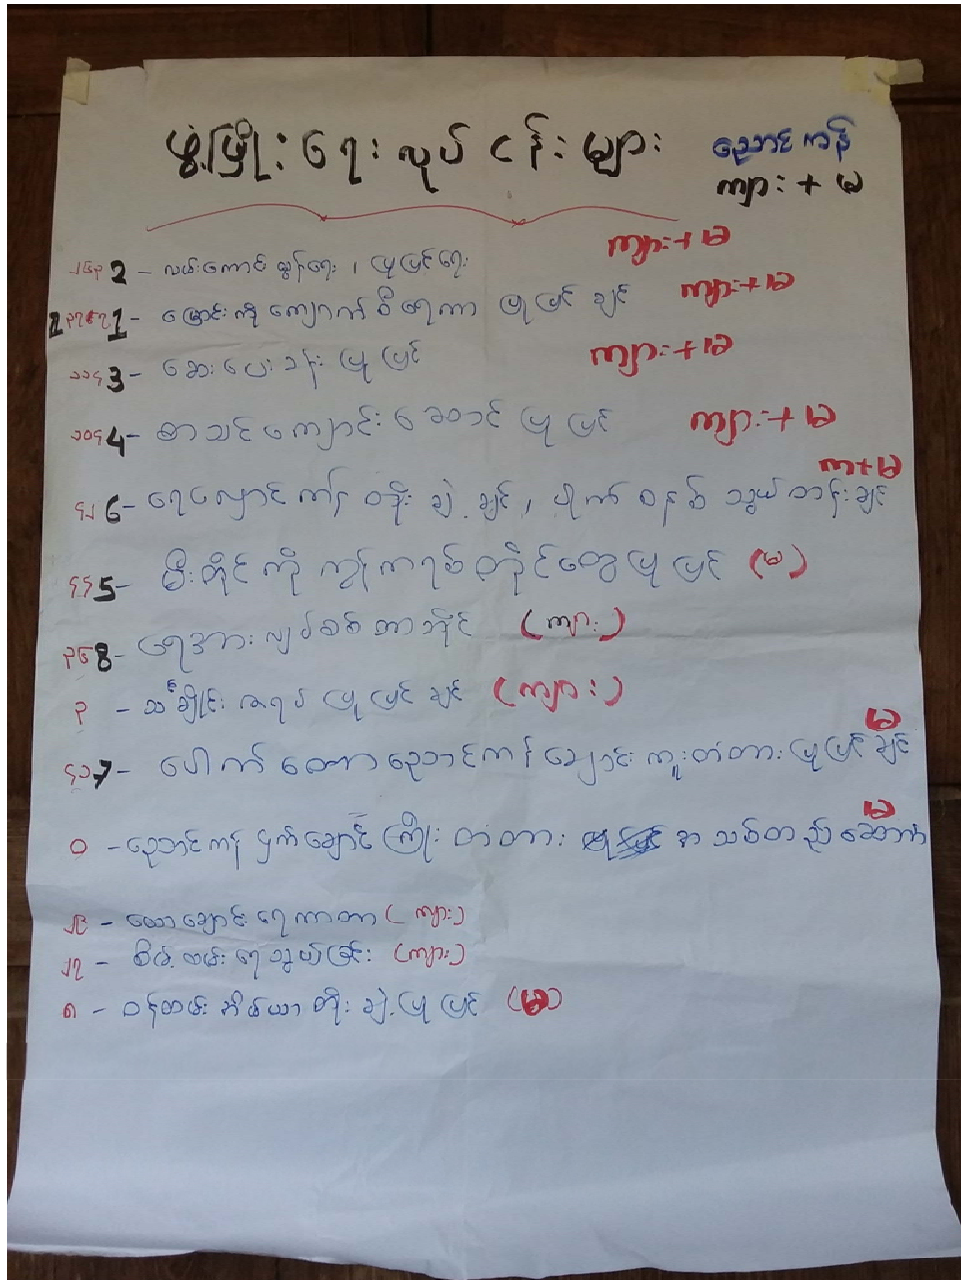 ဖွံ့ဖြိုးရေးလုပ်ငန်းများ
ညောင်ကန်
ကျား + မ
ကျား+မ
2 - လမ်းကောင်းမွန်ရေး ၊ ပြုပြင်ရေး
ကျား+မ
1 - မြောင်းကိုကျောက်စီရေကာ ပြုပြင်ချင်
ကျား+မ
3 - ဆေးပေးခန်းပြုပြင်
ကျား+မ
၁၀၄ 4 - စာသင်ကျောင်းဆောင်ပြုပြင်
က+မ
၄၂ 6 - ရေလှောင်ကန်တိုးချဲ့ချင် ၊ ပိုက်စနစ်သွယ်တန်းချင်
၄၄ 5 - မီးတိုင်ကိုကွန်ကရစ်တိုင်တွေပြုပြင် (မ)
၃၆ 8 - ရေအားလျှပ်စစ်တာဘိုင် (ကျား)
၃ - သင်္ချိုင်းဇရပ်ပြုပြင်ချင် (ကျား)
မ
၄၁ 7 - ပေါက်တောညောင်ကန်ချောင်းကူးတံတားပြုပြင်ချင်
မ
၀ - ညောင်ကန်ပှက်ချောင်းကြိုးတံတား အသစ်တည်ဆောက်
၂၆ - ချောင်းရေကာတာ (ကျား)
၂၇ - စိမ့်စမ်းရေသွယ်ခြင်း (ကျား)
၈ - ဝန်ထမ်းအိမ်ယာတိုးချဲ့ပြုပြင် (မ)